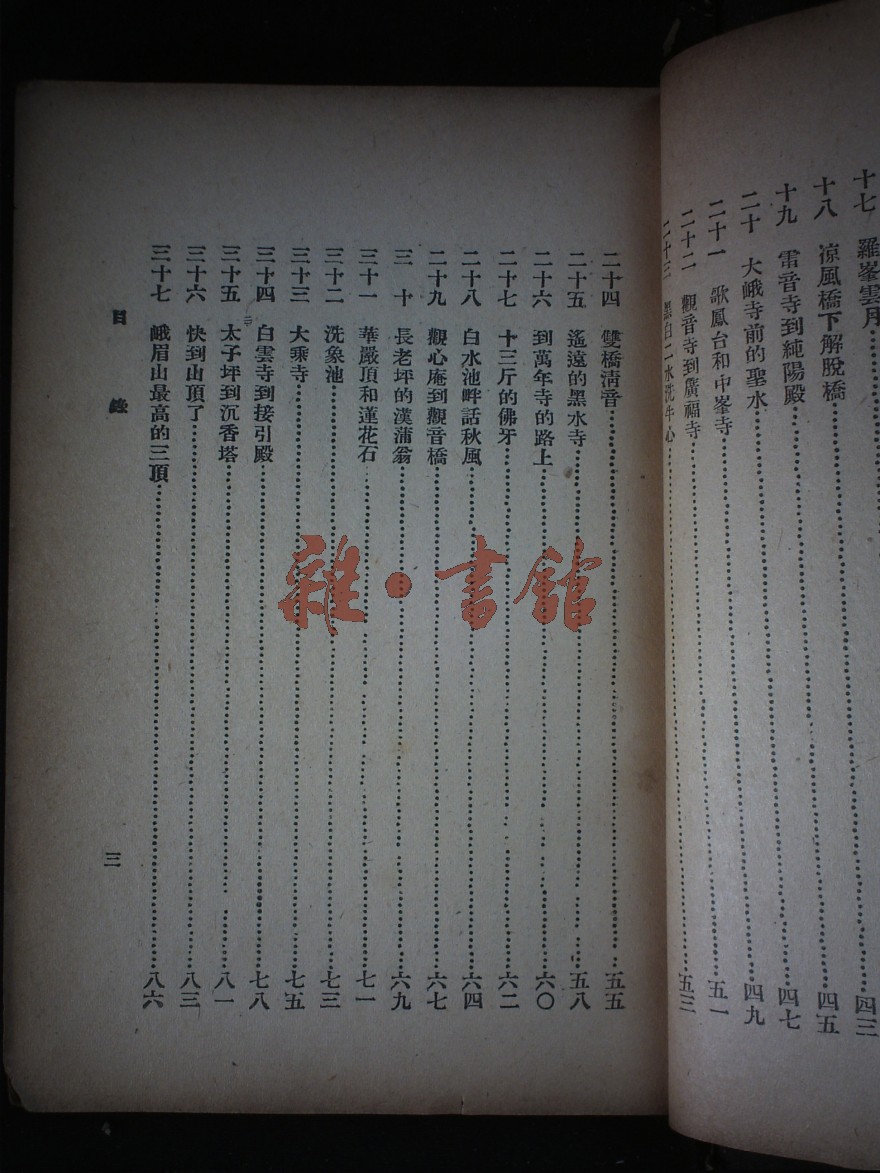 十七 羅峯雲月 四三
十八 涼風橋下解脫橋 四五
十九 雷音寺到純陽殿 四七
二十 大峨寺前的聖水 四九
二十一 歌鳳台和中峯寺 五一
二十二 觀音寺到廣福寺 五三
二十三 黑白二水洗牛心
二十四 雙橋清音 五五
二十五 遙遠的黑水寺 五八
二十六 到萬年寺的路上 六〇
二十七 十三斤的佛牙 六二
二十八 白水池畔話秋風 六四
二十九 觀心庵到觀音橋 六七
三十 長老坪的漢蒲翁 六九
三十一 華嚴頂和蓮花石 七一
三十二 洗象池 七三
三十三 大乘寺 七五
三十四 白雲寺到接引殿 七八
三十五 太子坪到沉香塔 八一
三十六 快到山頂了 八三
三十七 峨眉山最高的三頂 八六
目錄
三
雜·書館